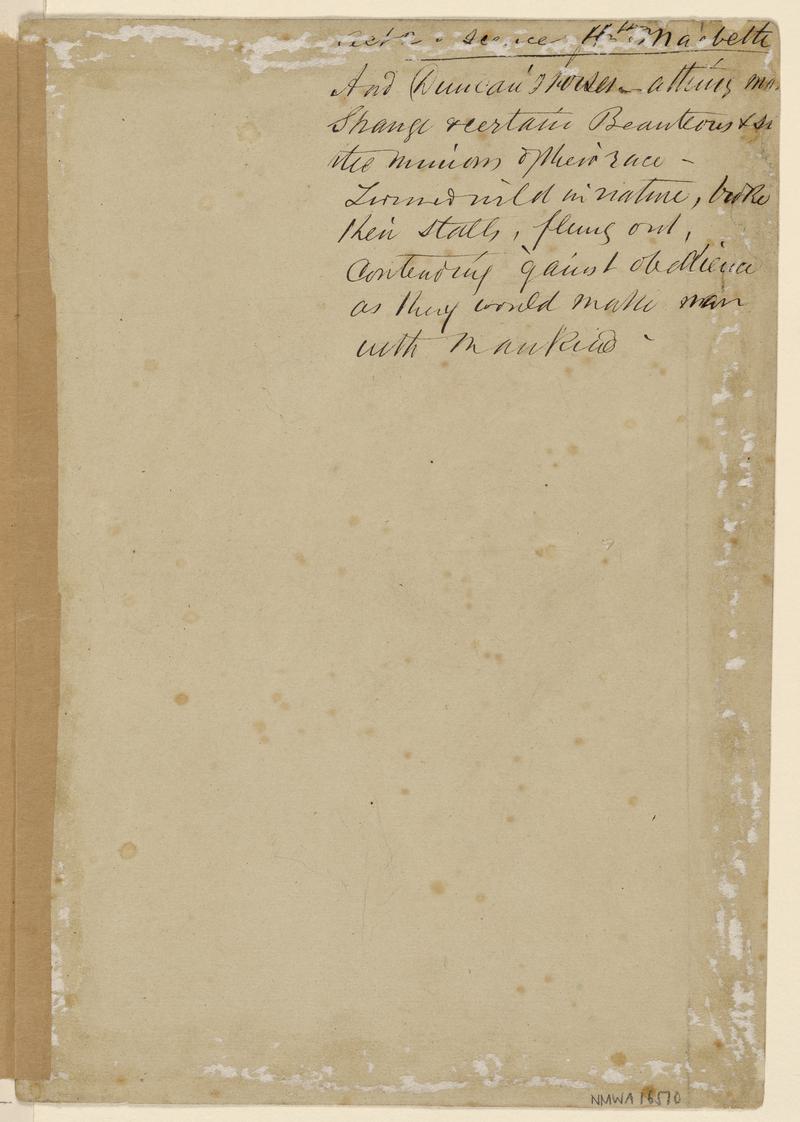 scene 4th Macbeth
And Duncan's horses – a thing mo
Strange & certain Beauteous & s
the minions of their race –
Turned wild in nature, broke
their stalls, flung out,
Contending 'gainst obedience
as they would make war
with Mankind –
NMWA 16510